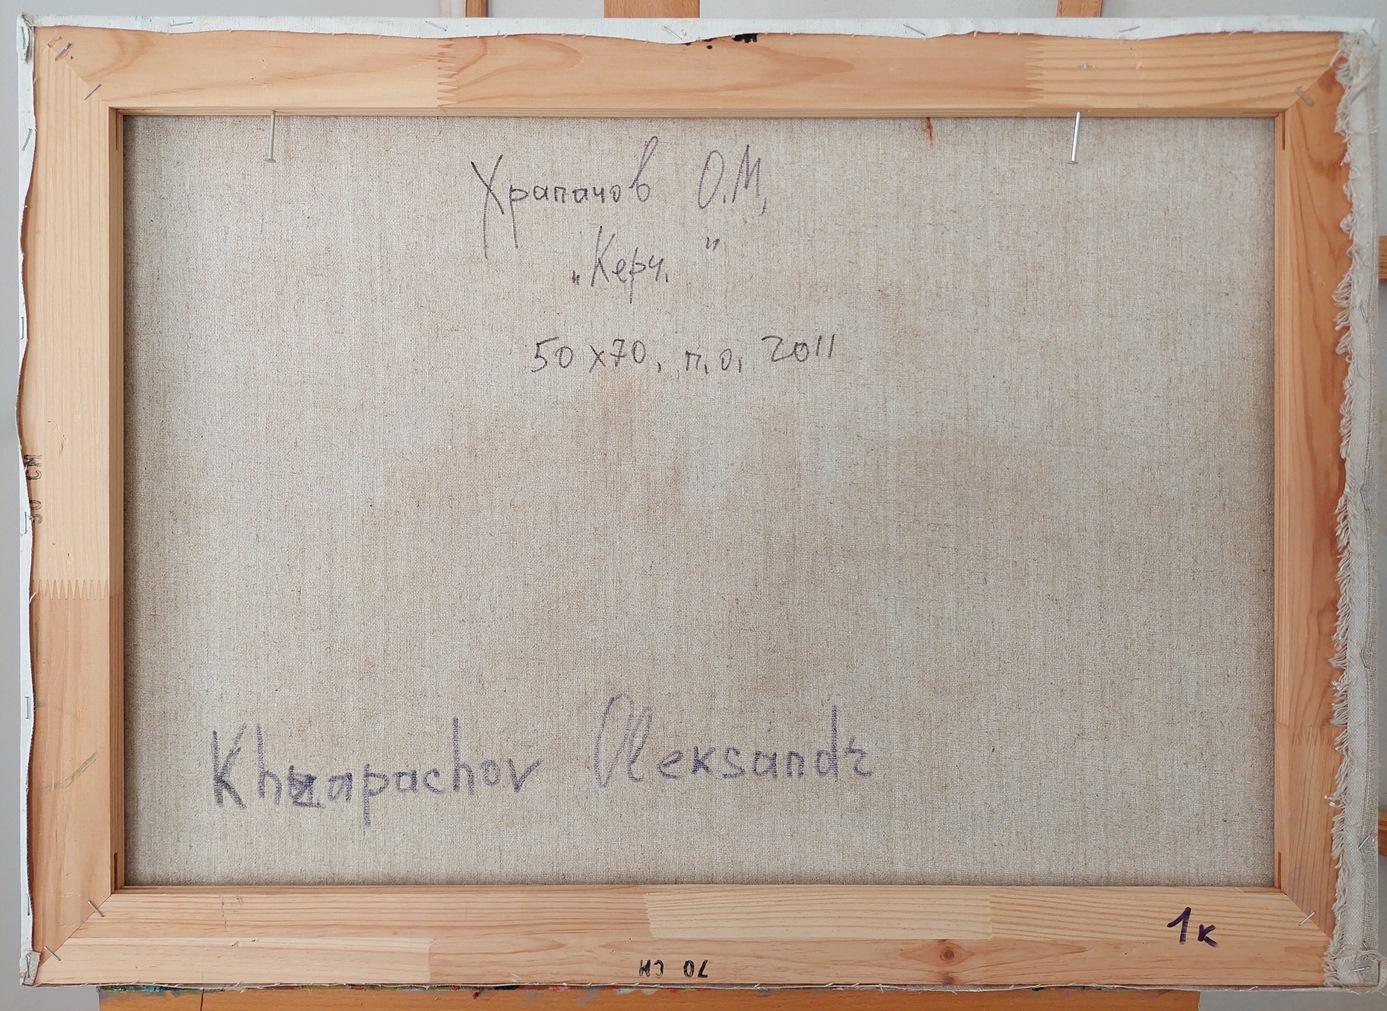 Храпачов О.М,
„Керч."
50 х 70, п,о, 2011
Khrapachov Oleksandr
1к
70 CM
50 CM